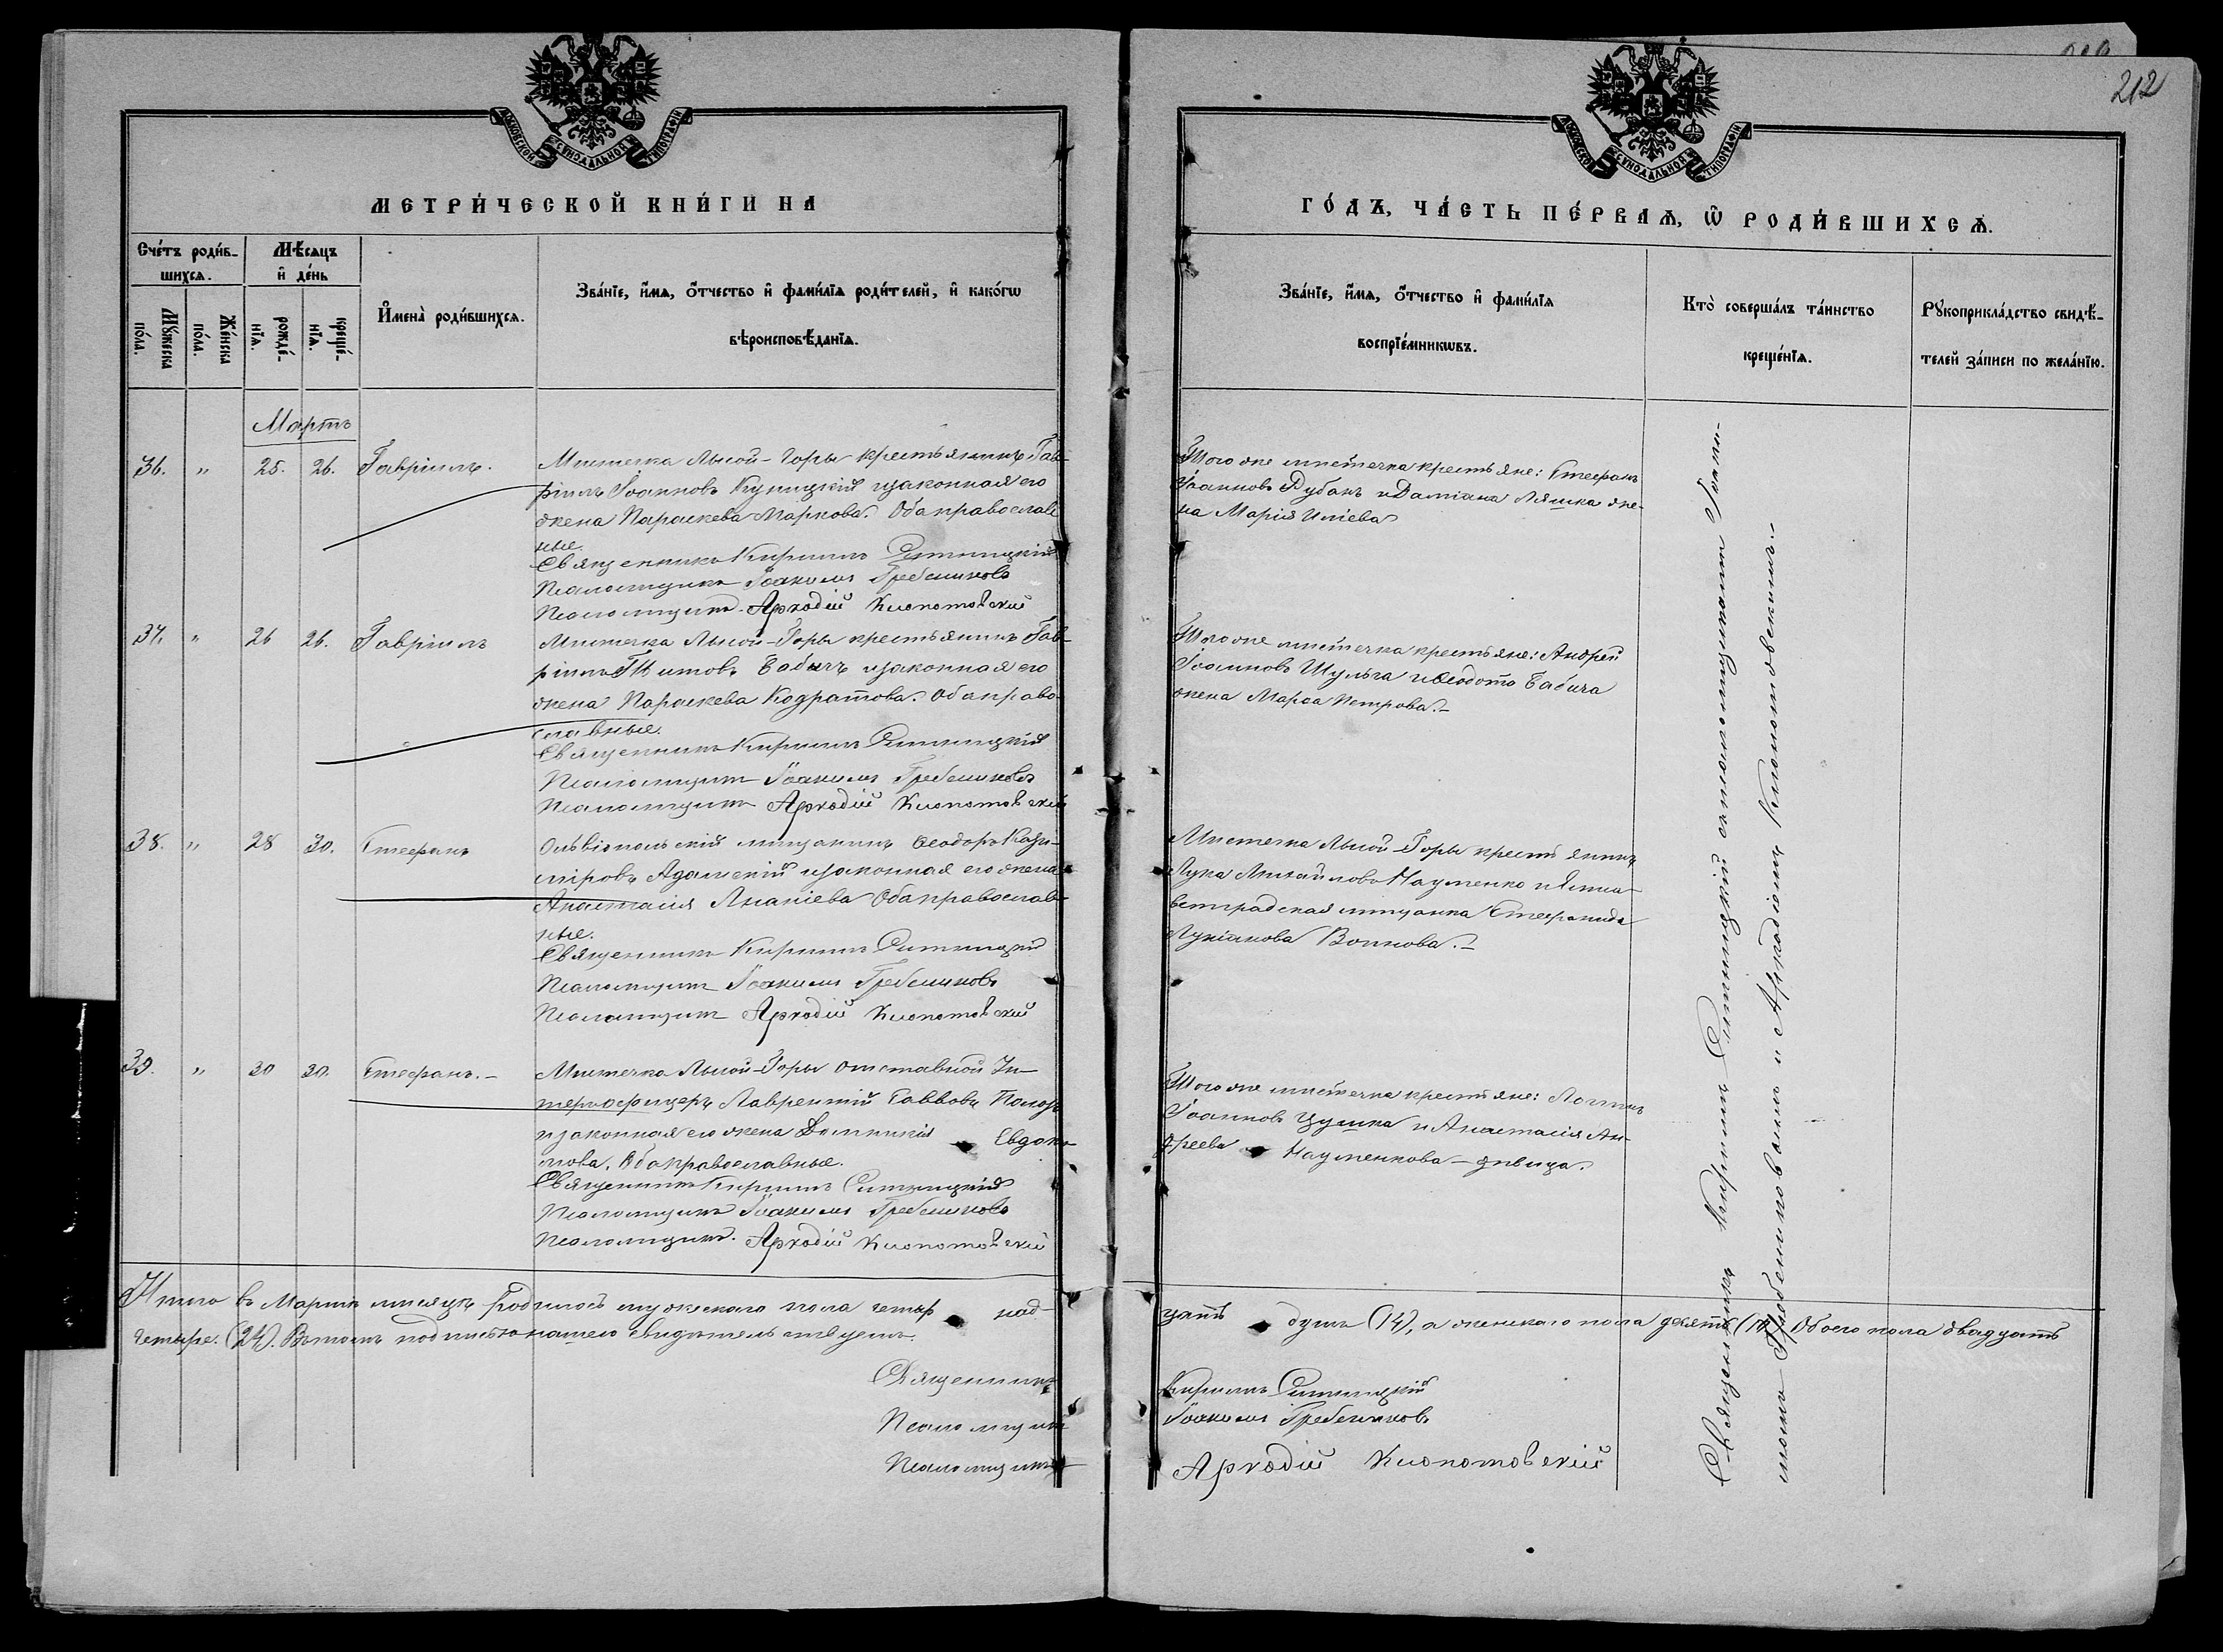 212
МЕТРИ́ЧЕСКОЙ КНИ́ГИ НА
ГО́ДЪ, ЧА́СТЬ ПЕ́РВАѦ, Ѿ РОДИ́ВШИХСѦ.
Сче́тъ роди́в-
шихсѧ.
Мѣ́сѧцъ
и̂ де́нь
Мꙋ́жеска по́ла.
Же́нска по́ла.
рожде́-нїѧ.
креще́-нїѧ.
И̂мена̀ роди́вшихсѧ.
Зва́нїе, и̂мѧ, о̂́тчество и̂ фами́лїѧ роди́телей, и̂ како́гѡ
вѣроисповѣ́данїѧ.
Зва́нїе, и̂мѧ, о̂́тчество и̂ фами́лїѧ
воспрїе́мникѡвъ.
Кто̀ соверша́лъ та́инство
креще́нїѧ.
Рꙋкоприкла́дство свидѣ́-
телей за́писи по жела́нїю.
Мартъ
36. " 25. 26. Гавріилъ.
Мѣстечка Лысой-Горы крестьянинъ Гав-
ріилъ Іоанновъ Куницкій изаконная его
жена Параскева Маркова. Оба православ
ные.
Священникъ Кириллъ Ситницкій
Псаломщикъ Іоакимъ Гребенниковъ
Псаломщикъ Аркадій Клопотовскій
Того же мѣстечка крестьяне: Стефанъ
Іоанновъ Рубанъ и Даміана Ляшка же-
на Марія Иліева
37. " 26 26. Гавріилъ
Мѣстечка Лысой-Горы крестьянинъ Гав-
ріилъ Титовъ Бабичъ изаконная его
жена Параскева Кодратова. Оба право-
славные.
Священникъ Кириллъ Ситницкій
Псаломщикъ Іоакимъ Гребенниковъ
Псаломщикъ Аркадій Клопотовскій
Того же мѣстечка крестьяне: Андрей
Іоанновъ Шульга и Ѳеодота Бабича
жена Марѳа Петрова.-
38. " 28 30. Стефанъ
Ольвіопольскій мѣщанинъ Ѳеодоръ Кази-
міровъ Адамскій изаконная его жена
Анастасія Ананіева Оба православ-
ные.
Священникъ Кириллъ Ситницкій
Псаломщикъ Іоакимъ Гребенниковъ
Псаломщикъ Аркадій Клопотовскій
Мѣстечка Лысой-Горы крестьянинъ
Лука Михайловъ Науменко и Елиса-
ветградская мѣщанка Стефанида
Лукіанова Воинова.-
39. " 30 30. Стефанъ.-
Мѣстечка Лысой-Горы отставной Ун-
теръофицеръ Лаврентій Саввовъ
изаконная его жена Домникія Евдоки-
мова. Оба православные.
Священникъ Кириллъ Ситницкій
Псаломщикъ Іоакимъ Гребенниковъ
Псаломщикъ. Аркадій Клопотовскій
Того же мѣстечка крестьяне: Логинъ
Іоанновъ Цушка и Анастасія Ан-
дреева Науменкова - дѣвица.
Священникъ Кириллъ Ситницкій съ псаломщиками Іоаки-
момъ Гребенниковымъ и Аркадіемъ Клопотовскимъ.-
Итого въ Мартѣ мѣсяцѣ родилось мужескаго пола четыр над-
цать душъ (14), а женскаго пола десять (10) Обоего пола двадцать
четыре. (24). Въ томъ подписью нашею свидѣтельствуемъ.
Священникъ Кириллъ Ситницкій
Псаломщикъ Іоакимъ Гребенниковъ
Псаломщикъ Аркадій Клопотовскій